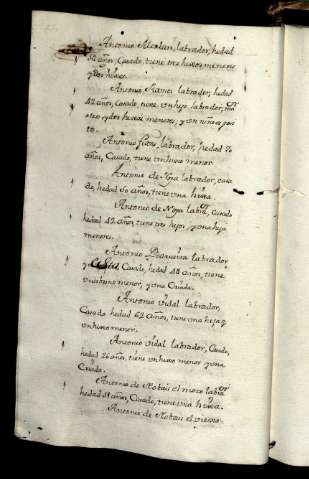 Antonio Alcolan, labrador, hedad
52 años, Casado, tiene tres huxos menores
y dos huxas.
Antonio Ramos labrador, hedad
42 años, Casado, tiene un hijo labrador, y
otros dos huxos menores, y un niño a par
te.
Antonio labrador, hedad 30
años, Casado, tiene un huxo menor.
Antonio de Noya labrador, casa
do, hedad 60 años, tiene una huxa.
Antonio de Noya labr.or, Casado
hedad 42 años, tiene tres hijos y una hija
menores.
Antonio labrador
y Casado, hedad 48 años, tiene
un huxo menor, y una Criada.
Antonio Vidal labrador,
Casado hedad 62 años, tiene una hija y
un huxo menor.
Antonio vidal labrador, Casado,
hedad 26 años, tiene un huxo menor y una
Criada.
Antonio de el moso labr.or
hedad años, Casado, tiene una huxa.
Antonio de el viexo.